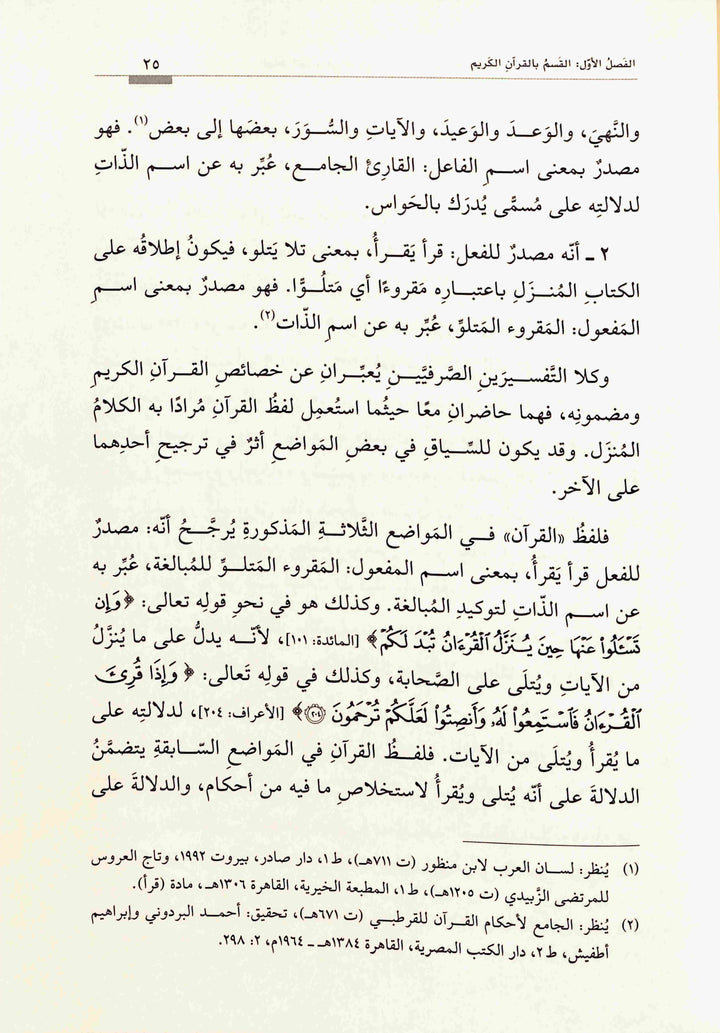 الفَصلُ الأوّل: القَسمُ بالقرآنِ الكَريم
٢٥
والنَّهيَ، والوَعـدَ والوَعيدَ، والآياتِ والسُّـوَرَ، بعضَها إلى بعض(١). فهو
مصدرٌ بمعنى اسـمِ الفاعل: القارِئ الجامع، عُبِّر به عن اسـم الذّاتِ
لدلالتِه على مُسمًّى يُدرَك بالحَواس.
٢ ـ أنّه مصدرٌ للفعل: قرأ يَقـرأُ، بمعنى تلا يَتلو، فيكونُ إطلاقُه على
الكتابِ المُنـزَلِ باعتبـارِه مَقروءًا أي مَتلُـوًّا. فهو مصدرٌ بمعنى اسـمِ
المَفعول: المَقروء المَتلوِّ، عُبِّر به عن اسمِ الذّات(٢).
وكلا التَّفسيـرَينِ الصَّرفيَّيـنِ يُعبِّـرانِ عن خصائصِ القـرآنِ الكريمِ
ومضمونِه، فهما حاضرانِ معًا حيثُما استُعمِل لفظُ القرآنِ مُرادًا به الكلامُ
المُنزَل. وقد يكون للسِّياقِ في بعضِ المَواضعِ أثرٌ في ترجيحِ أحدِهما
على الآخر.
فلفظُ «القرآن» فـي المَواضعِ الثَّلاثـةِ المَذكورةِ يُرجَّـحُ أنّه: مصدرٌ
للفعل قرأ يَقرأُ، بمعنى اسـم المفعول: المَقروء المَتلـوِّ للمُبالغة، عُبِّر به
عن اسـم الذّاتِ لتوكيدِ المُبالغة. وكذلك هو في نحوِ قولِه تعالى: ﴿وَإِن
تَسْـَٔلُوا۟ عَنْهَا حِينَ يُنَزَّلُ ٱلْقُرْءَانُ تُبْدَ لَكُمْ﴾ [المائدة: ١٠١]، لأنّـه يدلُّ على ما يُنزَّلُ
من الآياتِ ويُتلَى على الصَّحابة، وكذلك في قولِه تَعالى: ﴿وَإِذَا قُرِئَ
ٱلْقُرْءَانُ فَٱسْتَمِعُوا۟ لَهُۥ وَأَنصِتُوا۟ لَعَلَّكُمْ تُرْحَمُونَ ٢٠٤﴾ [الأعراف: ٢٠٤]، لدلالتِه على
ما يُقرأُ ويُتلَى من الآيات. فلفـظُ القرآنِ في المَواضعِ السّـابقةِ يتضمَّنُ
الدلالةَ على أنّه يُتلى ويُقرأُ لاستخلاصِ ما فيه من أحكام، والدلالةَ على
(١) يُنظر: لسـان العرب لابن منظور (ت ٧١١هـ)، ط١، دار صادر، بيروت ١٩٩٢، وتاج العروس
للمرتضى الزَّبيدي (ت ١٢٠٥هـ)، ط١، المطبعة الخيرية، القاهرة ١٣٠٦هـ، مادة (قرأ).
(٢) يُنظر: الجامع لأحكام القرآن للقرطبـي (ت ٦٧١هـ)، تحقيق: أحمـد البردوني وإبراهيم
أطفيش، ط٢، دار الكتب المصرية، القاهرة ١٣٨٤هـ ـ ١٩٦٤م، ٢: ٢٩٨.